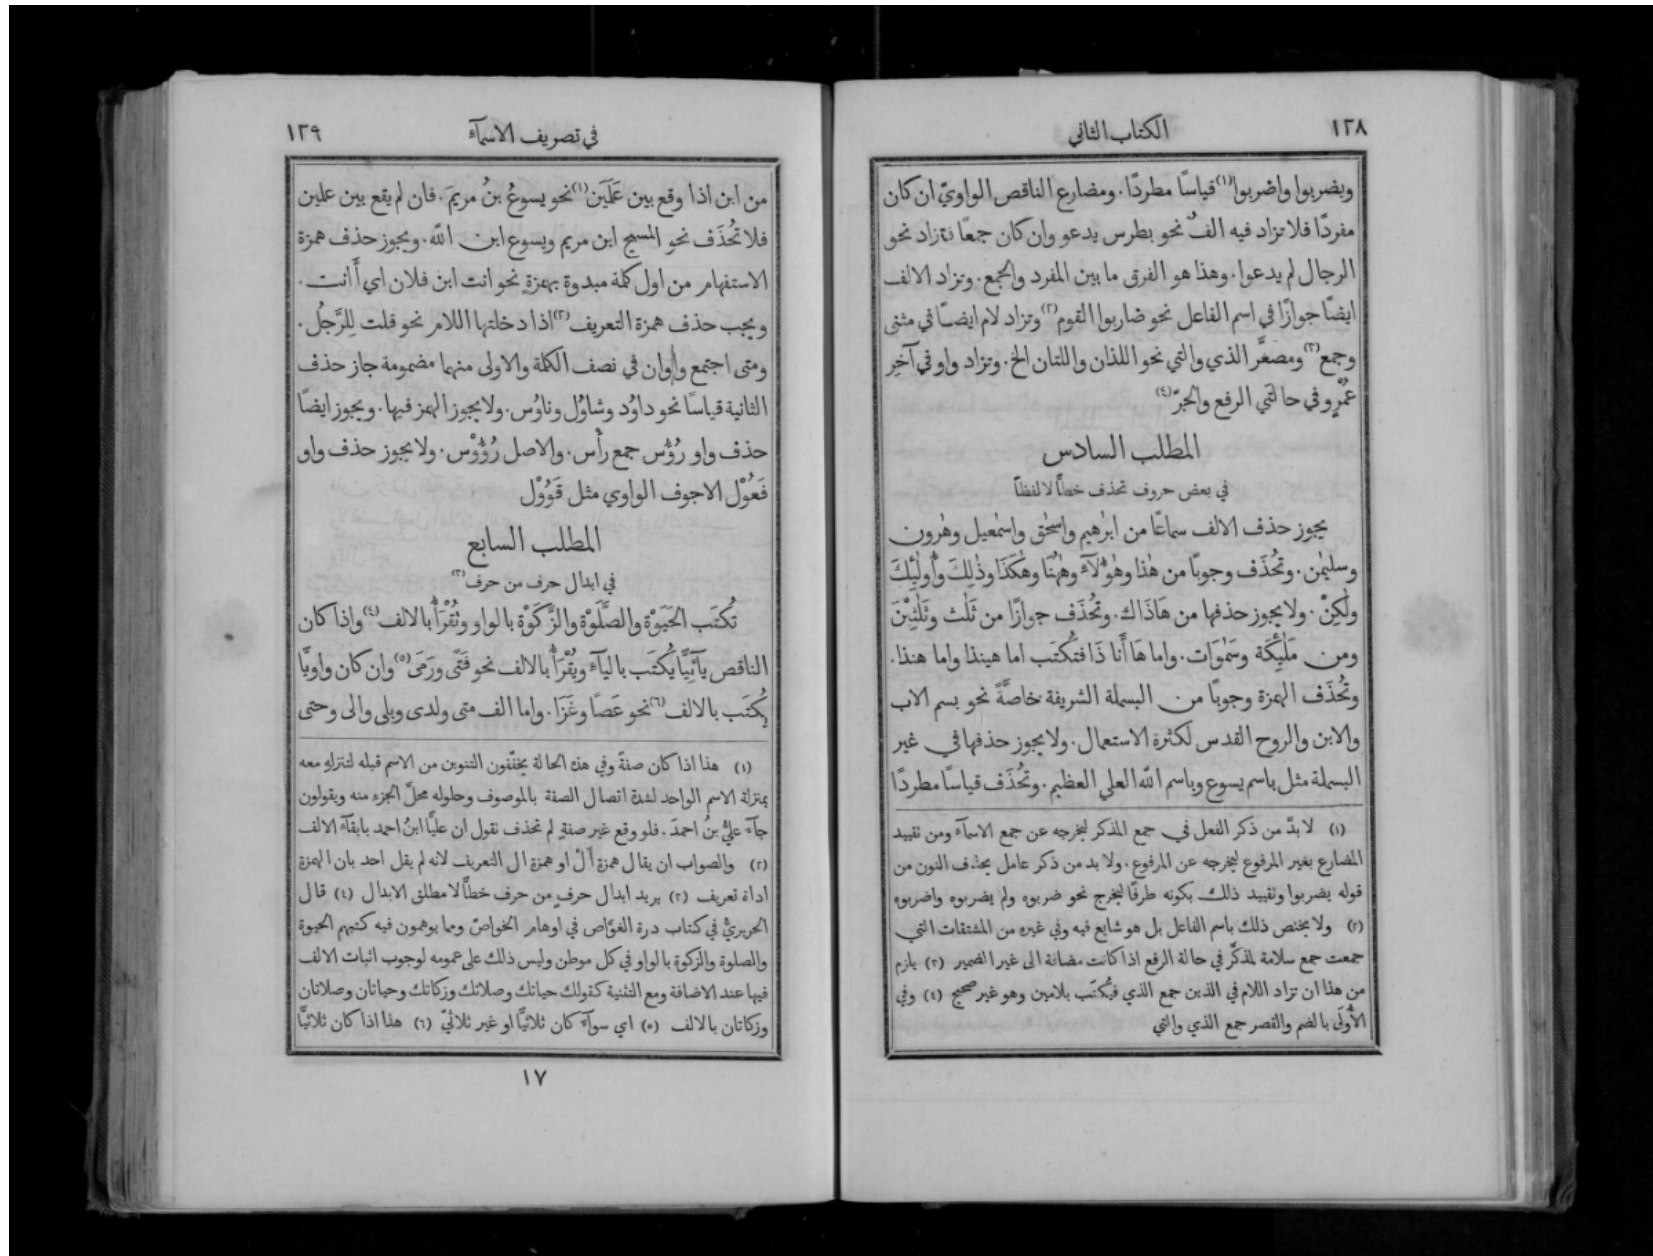 ١٢٨
الكتاب الثاني
ويضربوا واضربوا(١) قياسًا مطردًا. ومضارع الناقص الواويّ ان كان
مفردًا فلا تزاد فيه الفٌ نحو بطرس يدعو وان كان جمعًا فتزاد نحو
الرجال لم يدعوا. وهذا هو الفرق ما بين المفرد والجمع. وتزاد الالف
ايضًا جوازًا في اسم الفاعل نحو ضاربوا القوم(٢) وتزاد لام ايضًا في مثنى
وجمع(٣) ومصغَّر الذي والتي نحو اللذان واللتان الخ. وتزاد واو في آخِر
عَمْرٍو في حالتَي الرفع والجرّ(٤)
المطلب السادس
في بعض حروف تحذف خطًّا لا لفظًا
يجوز حذف الالف سماعًا من ابرٰهيم واسحٰق واسمٰعيل وهٰرون
وسليمٰن. وتُحذَف وجوبًا من هٰذا وهٰؤُلآءِ وهٰهُنَا وهٰكَذَا وذٰلِكَ وأُولٰئِكَ
ولٰكِنْ. ولا يجوز حذفها من هَاذَاك. وتُحذَف جوازًا من ثَلٰث وثَلٰثِيْنَ
ومن مَلٰئِكَة وسَمٰوَات. واما هَا أَنا ذَا فتُكتَب اما هٰينذا واما هنذا.
وتُحذَف الهمزة وجوبًا من البسملة الشريفة خاصَّةً نحو بسم الاب
والابن والروح القدس لكثرة الاستعمال. ولا يجوز حذفها في غير
البسملة مثل باسم يسوع وباسم الله العلي العظيم. وتُحذَف قياسًا مطردًا
(١) لا بدّ من ذكر الفعل في جمع المذكر ليخرجه عن جمع الاسمآء ومن تقييد
المضارع بغير المرفوع ليخرجه عن المرفوع. ولا بد من ذكر عامل يحذف النون من
قوله يضربوا وتقييد ذلك بكونه طرفًا ليخرج نحو ضربوه ولم يضربوه واضربوه
(٢) ولا يختص ذلك باسم الفاعل بل هو شايع فيه وفي غيره من المشتقات التي
جمعت جمع سلامة لمذكّر في حالة الرفع اذا كانت مضافة الى غير الضمير (٣) يلزم
من هذا ان تزاد اللام في الذين جمع الذي فيُكتَب بلامين وهو غير صحيح (٤) وفي
الأُولَى بالضم والقصر جمع الذي والتي
في تصريف الاسمآء
١٢٩
من ابن اذا وقع بين عَلَمَين(١) نحو يسوعُ بنُ مريمَ. فان لم يقع بين علمين
فلا تُحذَف نحو المسيح ابن مريم ويسوع ابن الله. ويجوز حذف همزة
الاستفهام من اول كلمة مبدوة بهمزةٍ نحو انت ابن فلان اي أَأَنت.
ويجب حذف همزة التعريف(٢) اذا دخلتها اللام نحو قلت لِلرَّجلُ.
ومتى اجتمع واوان في نصف الكلمة والاولى منهما مضمومة جاز حذف
الثانية قياسًا نحو داوُد وشاوُل وناوُس. ولا يجوز الهمز فيها. ويجوز ايضًا
حذف واو رُؤُس جمع رأْس. والاصل رُؤُوْس. ولا يجوز حذف واو
فَعُوْل الاجوف الواوي مثل قَوُوْل
المطلب السابع
في ابدال حرف من حرف(٣)
تُكتَب الحَيَوٰة والصَّلَوٰة والزَّكَوٰة بالواو وتُقْرَأُ بالالف(٤) واذا كان
الناقص يآئِيًّا يُكتَب باليآء ويُقْرَأُ بالالف نحو فَتًى ورَمَى(٥) وان كان واويًّا
يُكتَب بالالف(٦) نحو عَصًا وغَزَا. واما الف متى ولدى وبلى والى وحتى
(١) هذا اذا كان صفةً وفي هذه الحالة يخفّفون التنوين من الاسم قبله لتنزلهِ معه
بمنزلة الاسم الواحد لشدة اتصال الصفة بالموصوف وحلوله محلّ الجزء منه ويقولون
جآءَ عليُّ بنُ احمدَ. فلو وقع غير صفةٍ لم تحذف نقول ان عليًّا ابنُ احمد بابقآء الالف
(٢) والصواب ان يقال همزة أَلْ او همزة ال التعريف لانه لم يقل احد بان الهمزة
اداة تعريف (٣) يريد ابدال حرفٍ من حرف خطًّا لا مطلق الابدال (٤) قال
الحريريُّ في كتاب درة الغوّاص في اوهام الخواصّ ومما يوهمون فيه كتبهم الحيوة
والصلوة والزكوة بالواو في كل موطن وليس ذلك على عمومه لوجوب اثبات الالف
فيها عند الاضافة ومع التثنية كقولك حياتك وصلاتك وزكاتك وحياتان وصلاتان
وزكاتان بالالف (٥) اي سوآء كان ثلاثيًّا او غير ثلاثيّ (٦) هذا اذا كان ثلاثيًّا
١٧